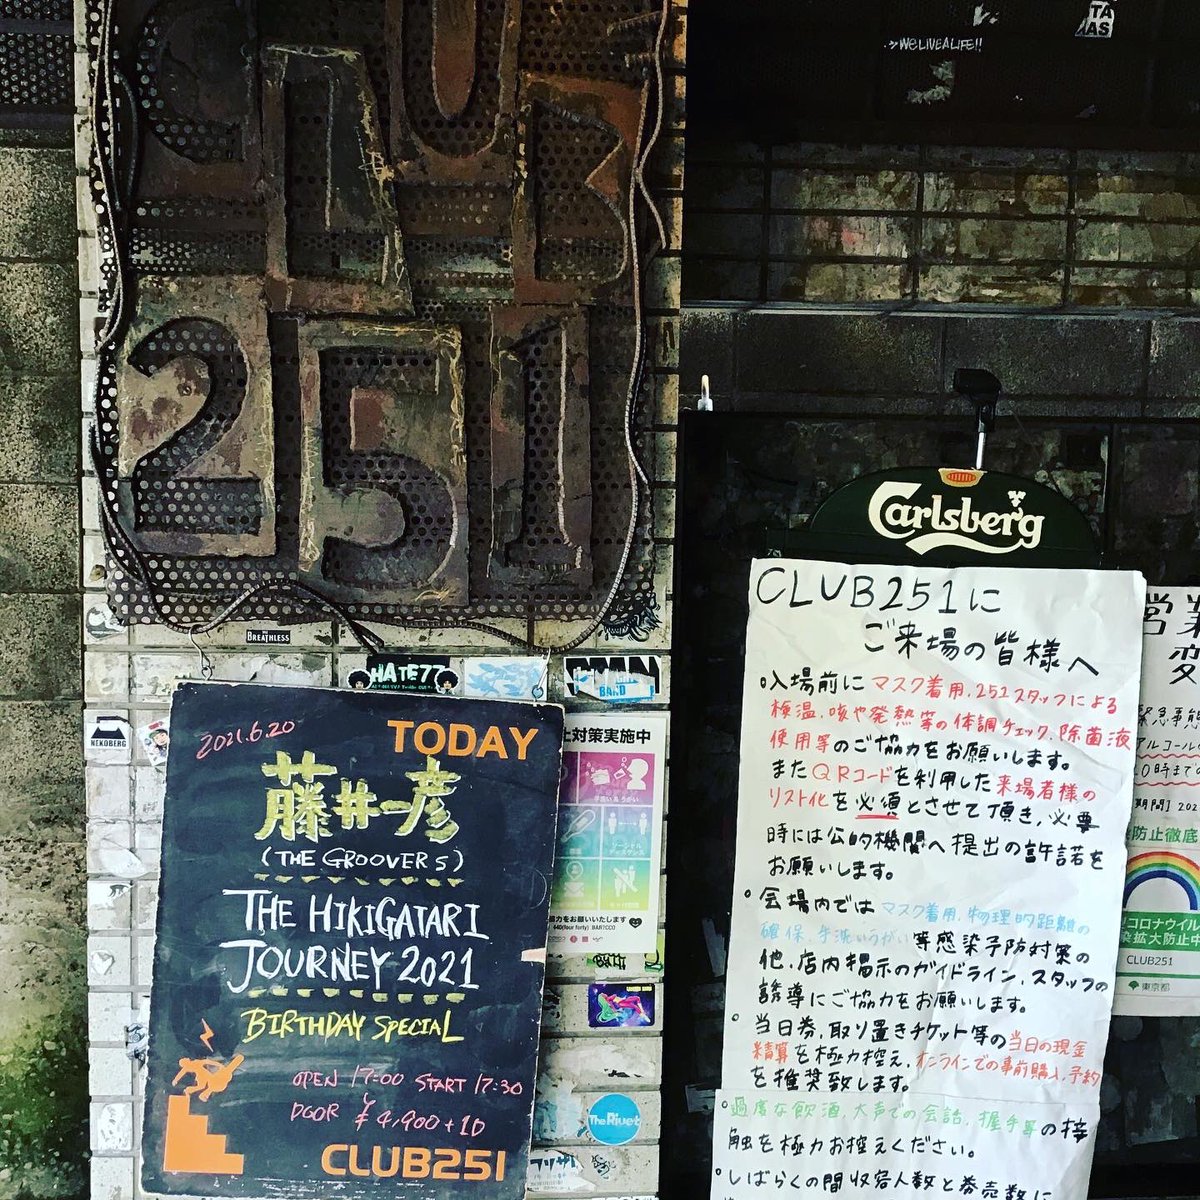 CLUB
251
BREATHLESS
HATE77
BAND
NEKOBERG
2021.6.20
TODAY
藤井一彦
(THE GROOVERS)
THE HIKIGATARI
JOURNEY 2021
BIRTHDAY SPECIAL
OPEN 17:00 START 17:30
DOOR ¥4,900+1D
CLUB251
止対策実施中
手洗い うがい
ソーシャル
ディスタンス
協力をお願いいたします
440(four forty) BAR?CCO
The Rivet
WeLIVEALIFE!!
TA
AS
Carlsberg
CLUB251に
ご来場の皆様へ
•入場前にマスク着用、251スタッフによる
検温、咳や発熱等の体調チェック、除菌液
使用等のご協力をお願いします。
またQRコードを利用した来場者様の
リスト化を必須とさせて頂き、必要
時には公的機関へ提出の許諾を
お願いします。
•会場内ではマスク着用、物理的距離の
確保、手洗いうがい等感染予防対策の
他、店内掲示のガイドライン、スタッフの
誘導にご協力をお願いします。
•当日券、取り置きチケット等の当日の現金
精算を極力控え、オンラインでの事前購入、予約
を推奨致します。
•過度な飲酒、大声での会話、握手等の接
触を極力お控えください。
•しばらくの間収容人数と券売数に
営業
変
緊急事態
アルコールの
0時までの
期間】202
防止徹底
コロナウイル
染拡大防止中
CLUB251
東京都